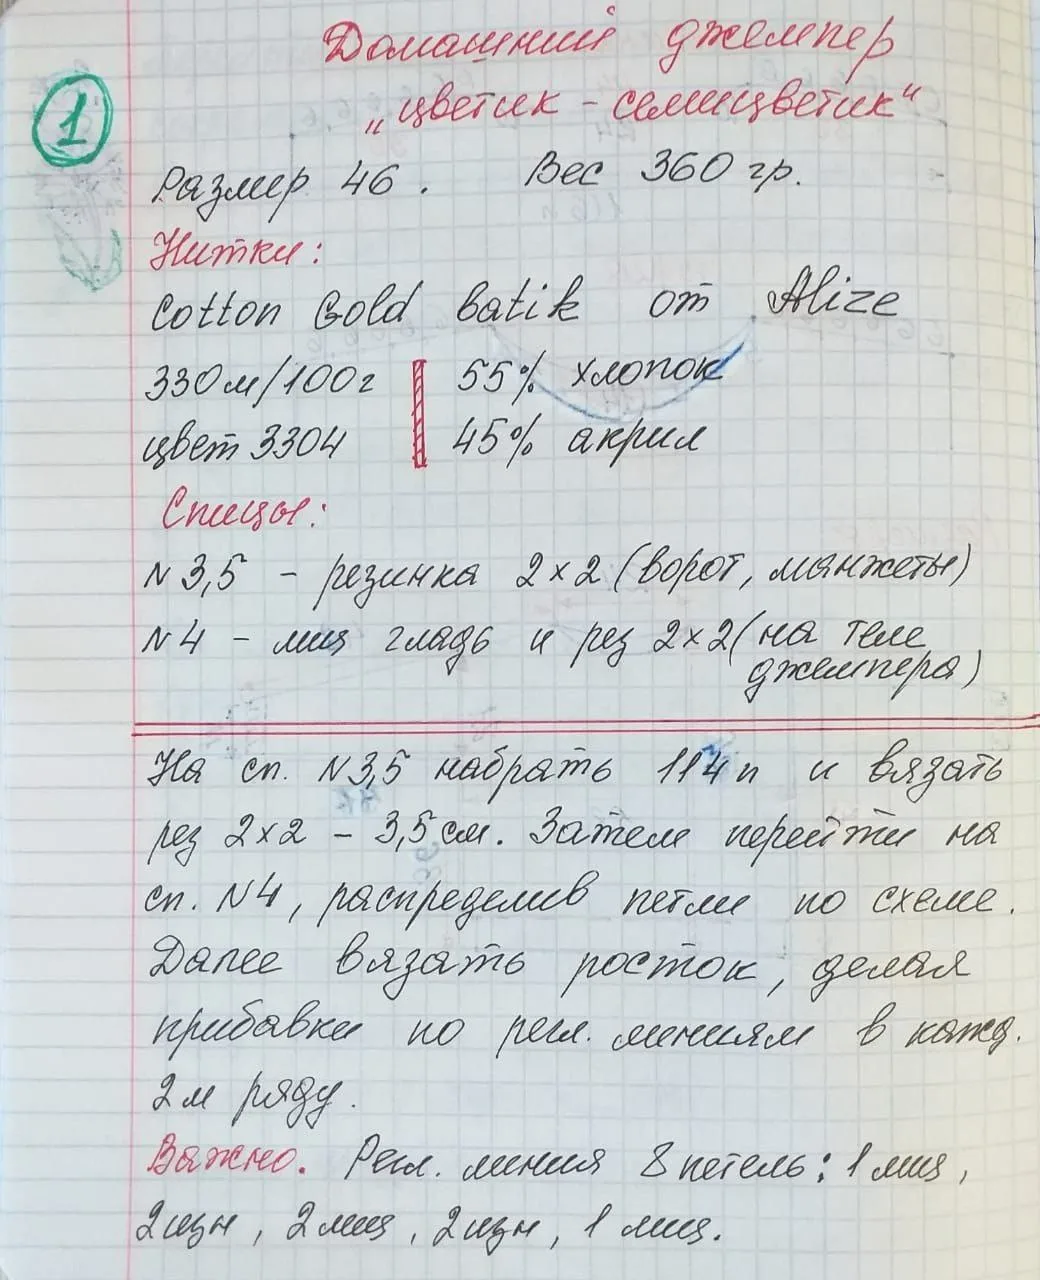 Домашний джемпер
„цветик - семицветик"
1
Размер 46. Вес 360 гр.
Нитки:
Cotton Gold batik от Alize
330м/100г 55% хлопок
цвет 3304 45% акрил
Спицы:
N 3,5 - резинка 2×2 (ворот, манжеты)
N 4 - лиц гладь и рез 2×2 (на теле
джемпера)
На сп. N3,5 набрать 114 п и вязать
рез 2×2 - 3,5 см. Затем перейти на
сп. N4, распределив петли по схеме.
Далее вязать росток, делая
прибавки по регл. линиям в кажд.
2м ряду.
Важно. Регл. линия 8 петель: 1 лиц,
2 изн, 2 лиц, 2 изн, 1 лиц.